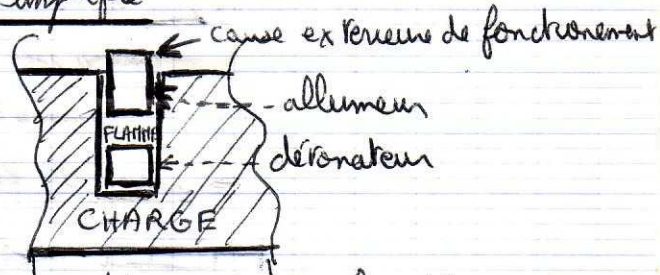 cause extérieure de fonctionement
allumeur
FLAMME
détonateur
CHARGE